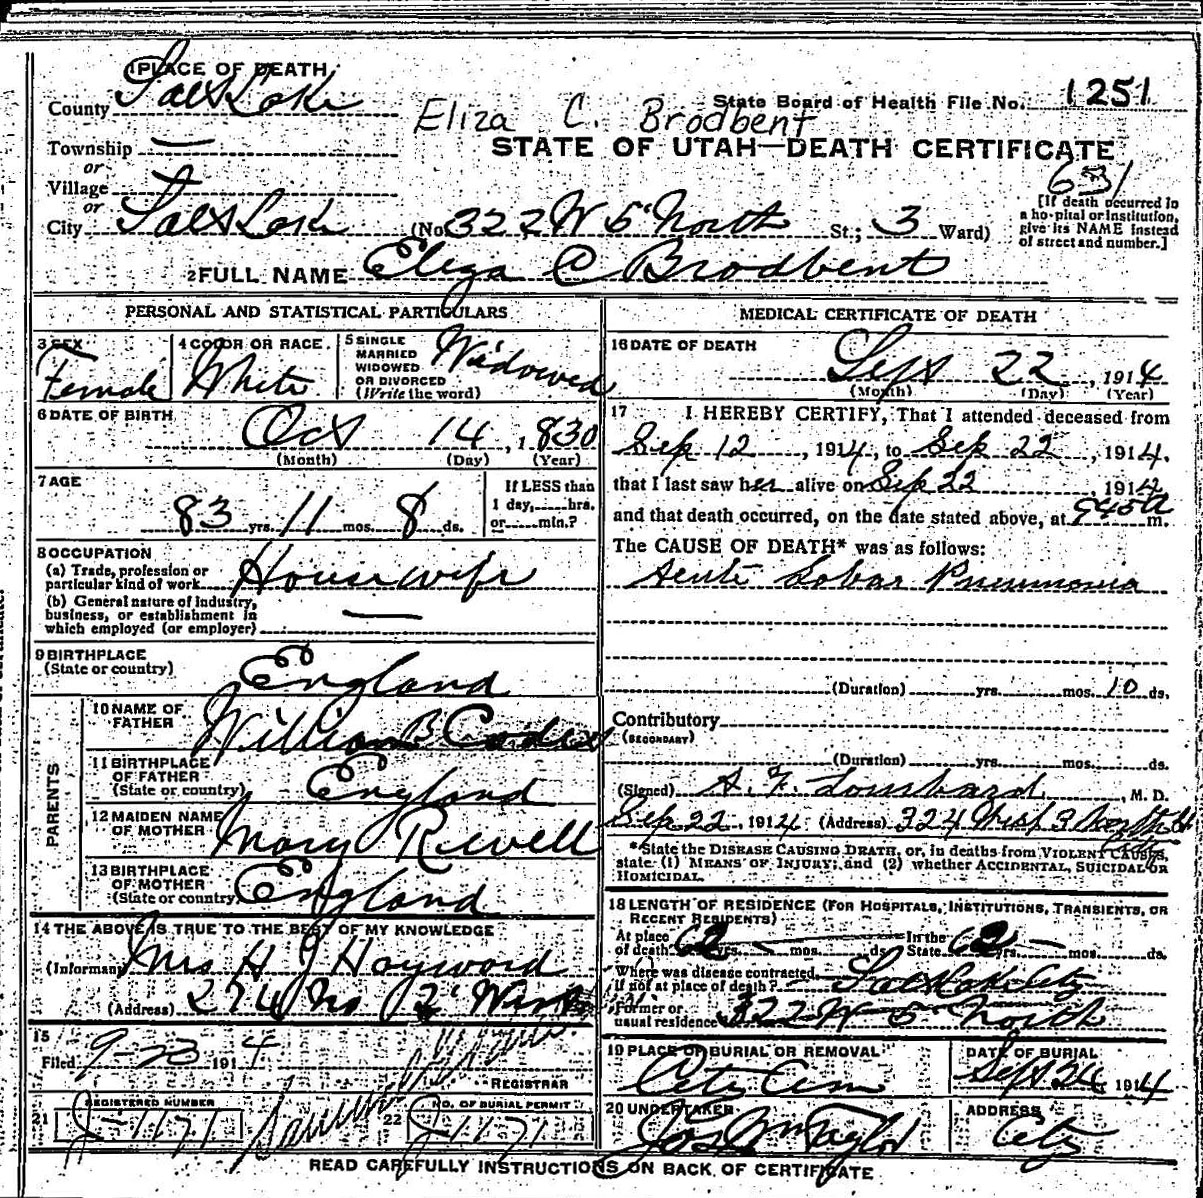 1 PLACE OF DEATH
County Salt Lake
State Board of Health File No. 1251
Eliza C. Brodbent
Township —
STATE OF UTAH—DEATH CERTIFICATE
or
Village
631
or
City Salt Lake (No. 322 W 5" North St.; 3 Ward)
[If death occurred in
a hospital or institution,
give its NAME instead
of street and number.]
2 FULL NAME Eliza C Brodbent
PERSONAL AND STATISTICAL PARTICULARS
3 SEX
Female
4 COLOR OR RACE.
White
5 SINGLE
MARRIED
WIDOWED
OR DIVORCED
(Write the word)
Widowed
6 DATE OF BIRTH
Oct 14, 1830
(Month) (Day) (Year)
7 AGE
83 yrs. 11 mos. 8 ds.
If LESS than
1 day, hrs.
or min.?
8 OCCUPATION
(a) Trade, profession or
particular kind of work Housewife
(b) General nature of industry,
business, or establishment in
which employed (or employer) —
9 BIRTHPLACE
(State or country) England
PARENTS
10 NAME OF
FATHER William B
11 BIRTHPLACE
OF FATHER
(State or country) England
12 MAIDEN NAME
OF MOTHER Mary Revell
13 BIRTHPLACE
OF MOTHER
(State or country) England
14 THE ABOVE IS TRUE TO THE BEST OF MY KNOWLEDGE
(Informant) Mrs H J Hayward
(Address) No 2" West
15
Filed 9-23 1914
REGISTRAR
21 REGISTERED NUMBER
J-1171
22 NO. OF BURIAL PERMIT
J-1171
MEDICAL CERTIFICATE OF DEATH
16 DATE OF DEATH
Sept 22, 1914
(Month) (Day) (Year)
17 I HEREBY CERTIFY, That I attended deceased from
Sep 12, 1914, to Sep 22, 1914.
that I last saw her alive on Sep 22 1914
and that death occurred, on the date stated above, at 945a m.
The CAUSE OF DEATH* was as follows:
Acute Lobar Pneumonia
(Duration) yrs. mos. 10 ds.
Contributory
(SECONDARY)
(Duration) yrs. mos. ds.
(Signed) A. F. Lombard, M. D.
Sep 22, 1914 (Address) 324 West 3 North St City
*State the DISEASE CAUSING DEATH, or, in deaths from VIOLENT CAUSES,
state (1) MEANS OF INJURY; and (2) whether ACCIDENTAL, SUICIDAL OR
HOMICIDAL.
18 LENGTH OF RESIDENCE (FOR HOSPITALS, INSTITUTIONS, TRANSIENTS, OR
RECENT RESIDENTS)
At place
of death 62 yrs. — mos. ds.
In the
State 62 yrs. — mos. ds.
Where was disease contracted,
if not at place of death? Salt Lake City
Former or
usual residence 322 W 5" North
19 PLACE OF BURIAL OR REMOVAL
City Cem
DATE OF BURIAL
Sept 24 1914
20 UNDERTAKER
Jos Wm Taylor
ADDRESS
City
READ CAREFULLY INSTRUCTIONS ON BACK OF CERTIFICATE